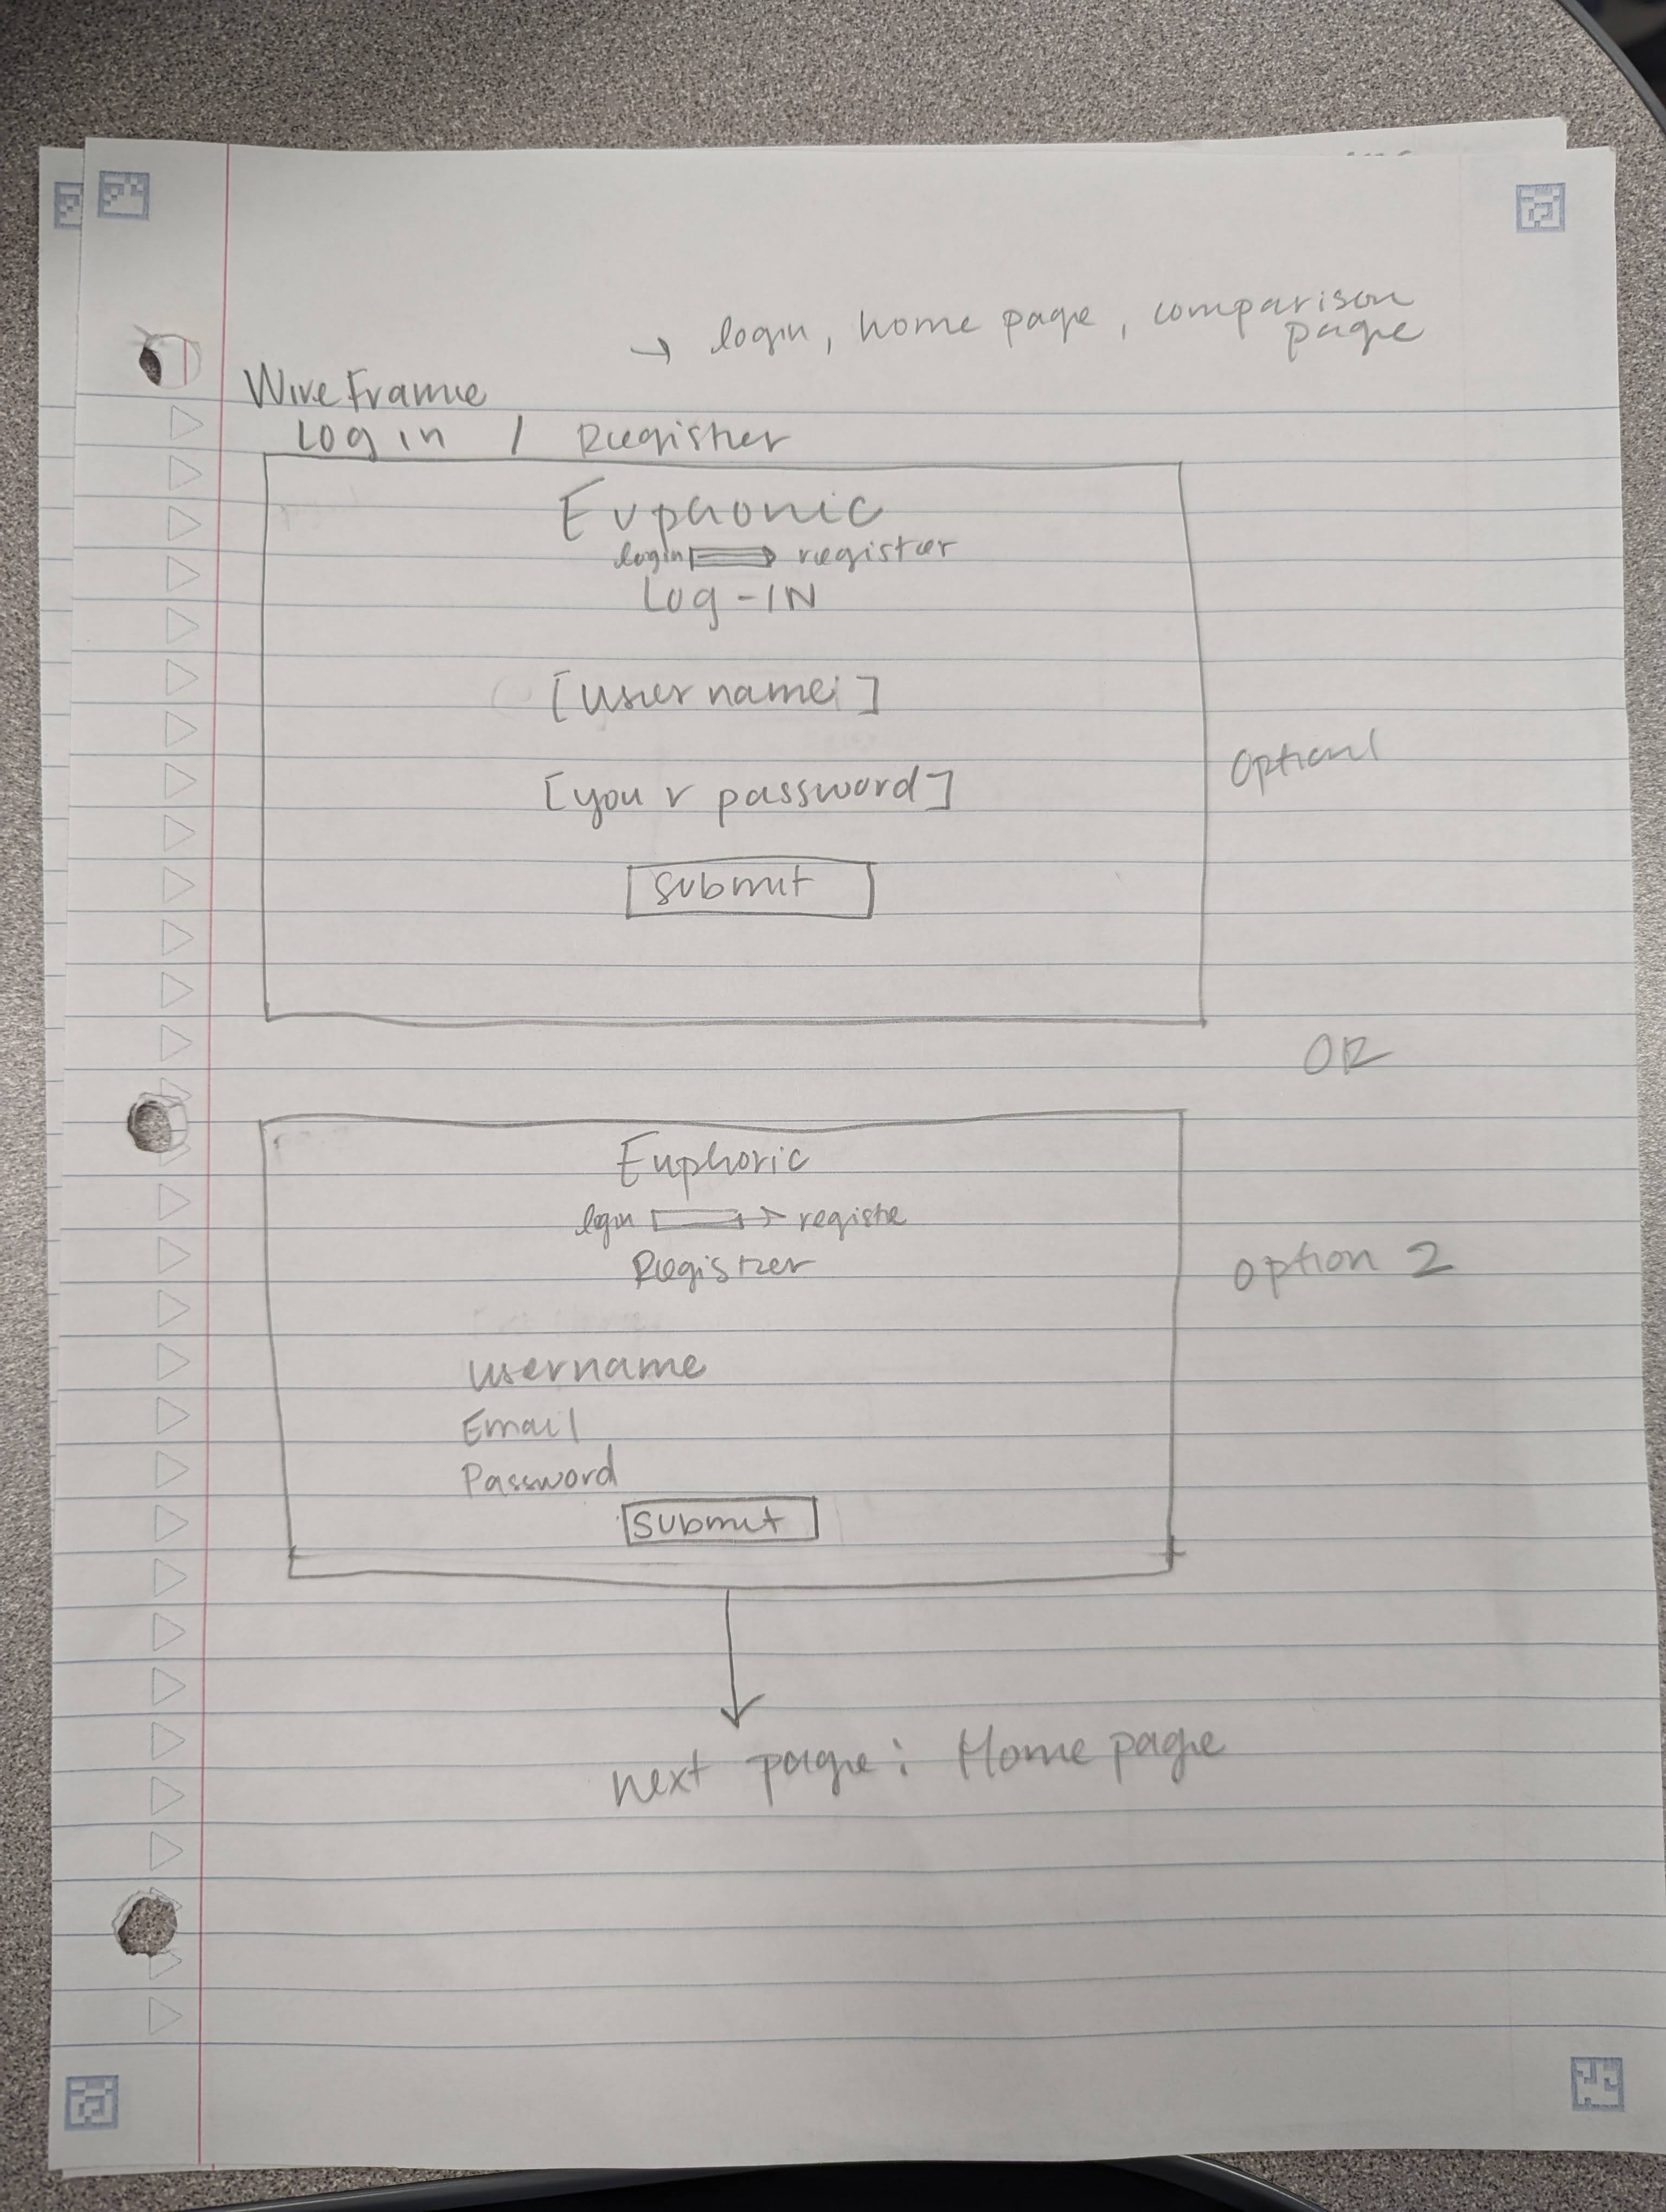 → login, home page, comparison
page
WireFrame
Login / Register
Euphonic
login register
Log-IN
[username]
[your password]
Option 1
Submit
OR
Euphoric
login → registe
Register
option 2
username
Email
Password
Submit
next page: Home page